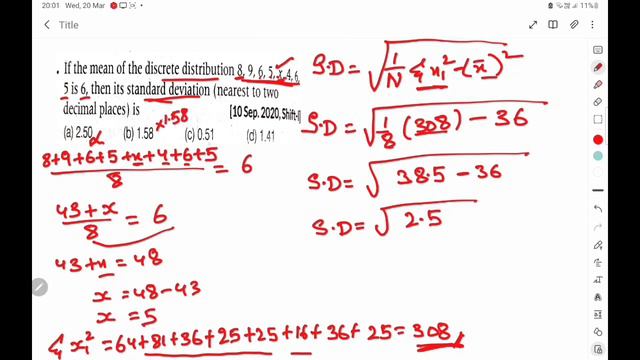 20:01 Wed, 20 Mar
Title
If the mean of the discrete distribution 8, 9, 6, 5, x, 4, 6,
5 is 6, then its standard deviation (nearest to two
decimal places) is [10 Sep. 2020, Shift-I]
x 1.58
(a) 2.50 (b) 1.58 (c) 0.51 (d) 1.41
8+9+6+5+x+4+6+5 / 8 = 6
43+x / 8 = 6
43+x = 48
x = 48-43
x = 5
Σ x₁² = 64+81+36+25+25+16+36+25 = 308
S.D = √ 1/N Σ x₁² - (x̄)²
S.D = √ 1/8 (308) - 36
S.D = √ 38.5 - 36
S.D = √ 2.5